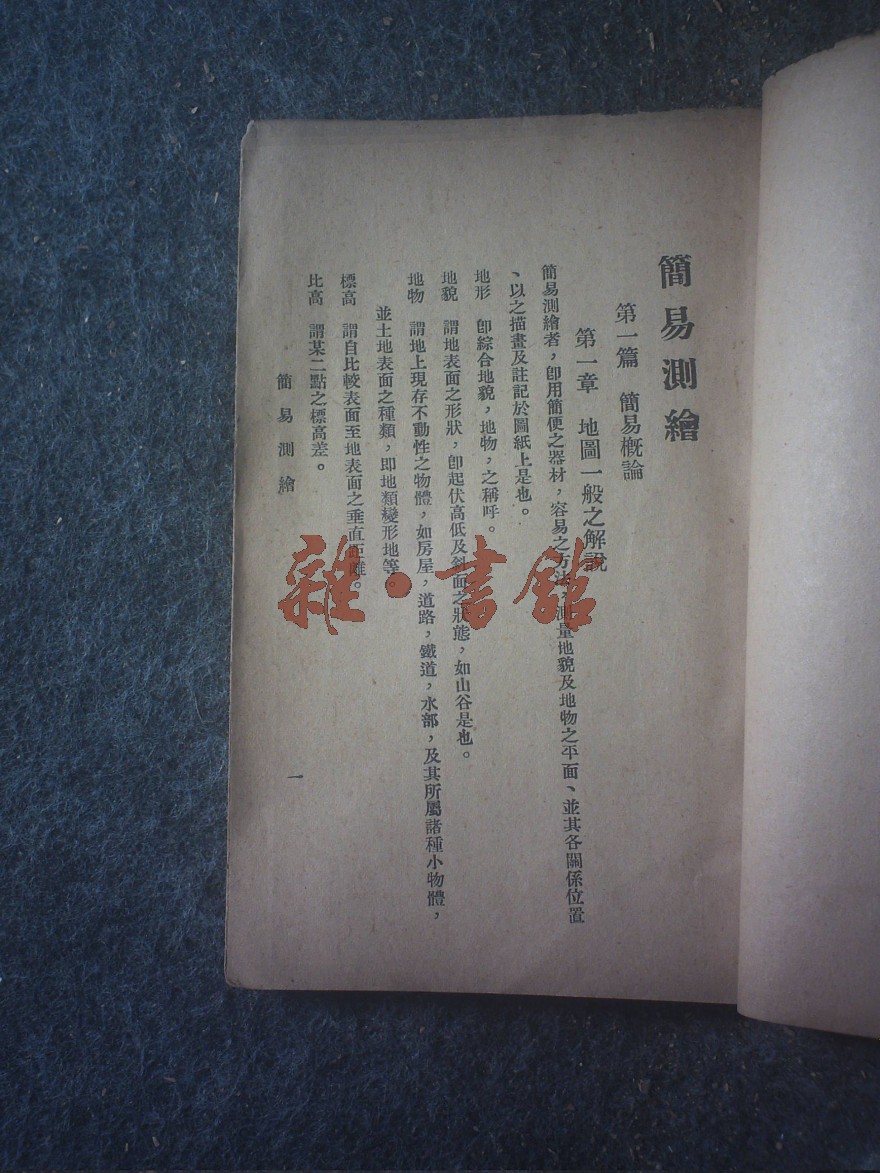 簡易測繪
第一篇　簡易概論
第一章　地圖一般之解說
簡易測繪者，卽用簡便之器材，容易之方法，測量地貌及地物之平面、並其各關係位置
、以之描畫及註記於圖紙上是也。
地形　卽綜合地貌，地物，之稱呼。
地貌　謂地表面之形狀，卽起伏高低及斜面之狀態，如山谷是也。
地物　謂地上現存不動性之物體，如房屋，道路，鐵道，水部，及其所屬諸種小物體，
並土地表面之種類，即地類變形地等。
標高　謂自比較表面至地表面之垂直距離。
比高　謂某二點之標高差。
簡易測繪
一
雜·書館